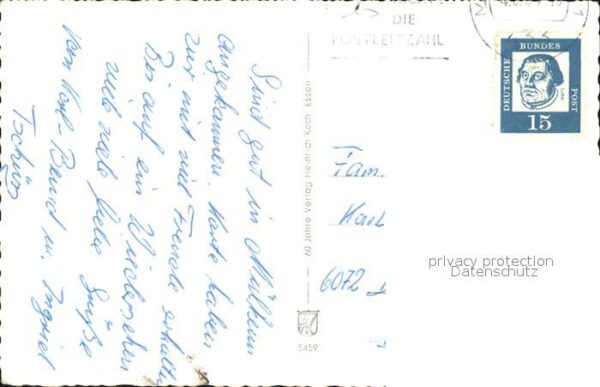 Sind gut in Mülheim
angekommen. Karte haben
wir mit viel Freude erhalten
Bis auf ein Wiedersehen
viele liebe Grüße
Bernd u. Ingrid
Tschüss
60 Jahre Verlag Heinrich Koch Essen
5459
DIE
POSTLEITZAHL
DEUTSCHE
BUNDES
POST
15
Fam
6072
privacy protection
Datenschutz